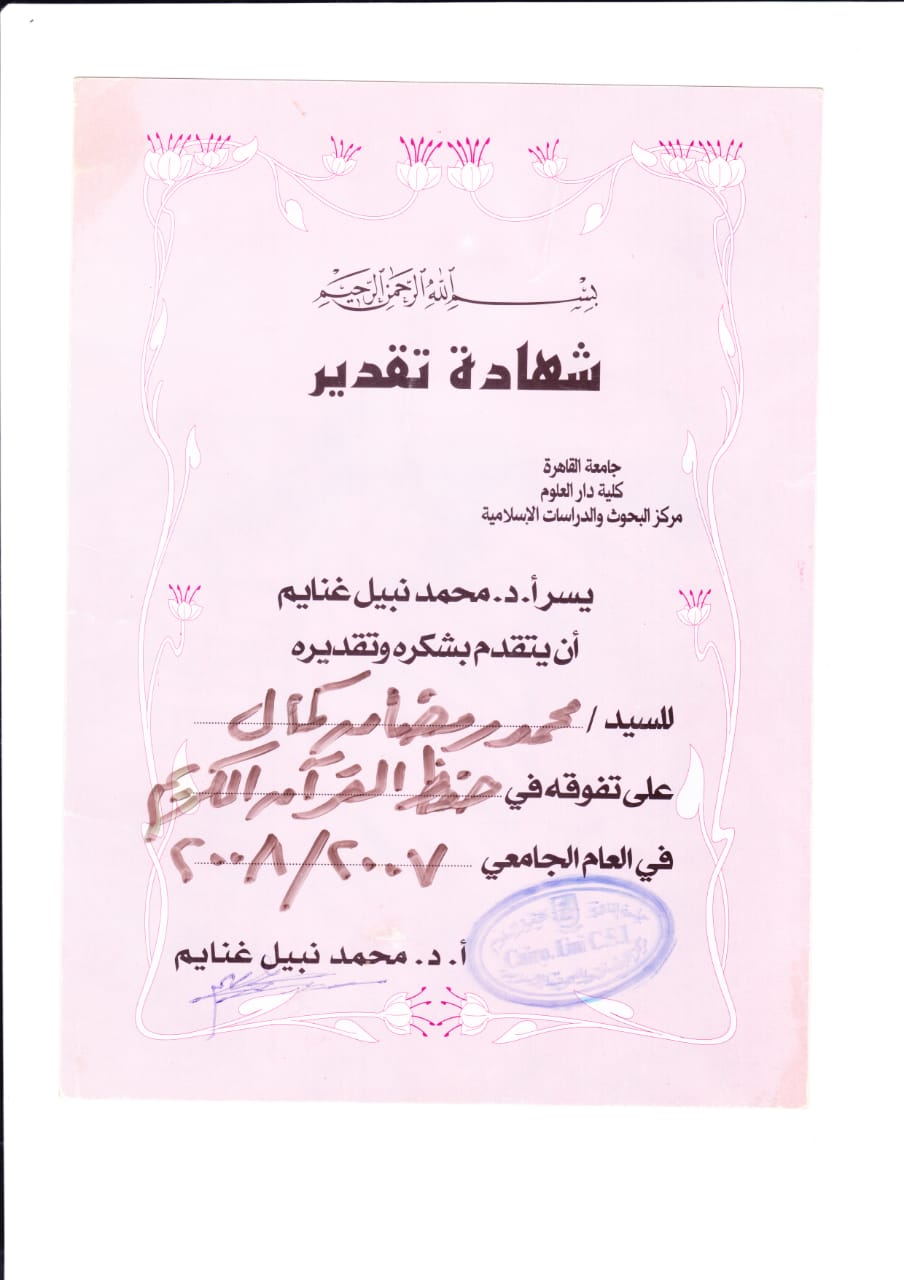 بسم الله الرحمن الرحيم
شهادة تقدير
جامعة القاهرة
كلية دار العلوم
مركز البحوث والدراسات الإسلامية
يسر أ.د. محمد نبيل غنايم
أن يتقدم بشكره وتقديره
للسيد / محمود رمضان كمال
على تفوقه في حفظ القرآن الكريم
في العام الجامعي ٢٠٠٨/٢٠٠٧
Cairo. Uni C.S.I.
أ. د. محمد نبيل غنايم